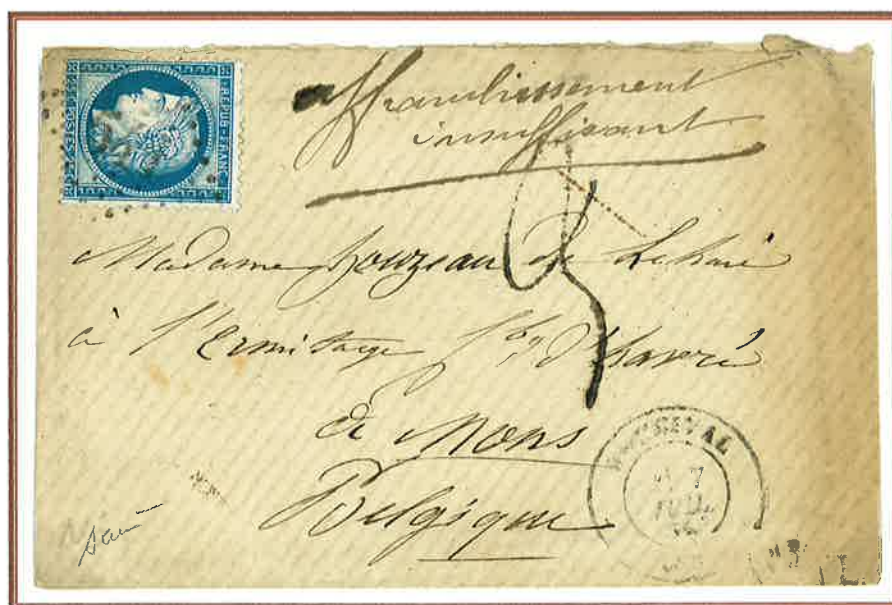 REPUB · FRANC
POSTES
affranchissement
insuffisant
5
Madame Houzeau de Lehaie
à l'Ermitage fbg d'havré
à Mons
Belgique
7
JUIL